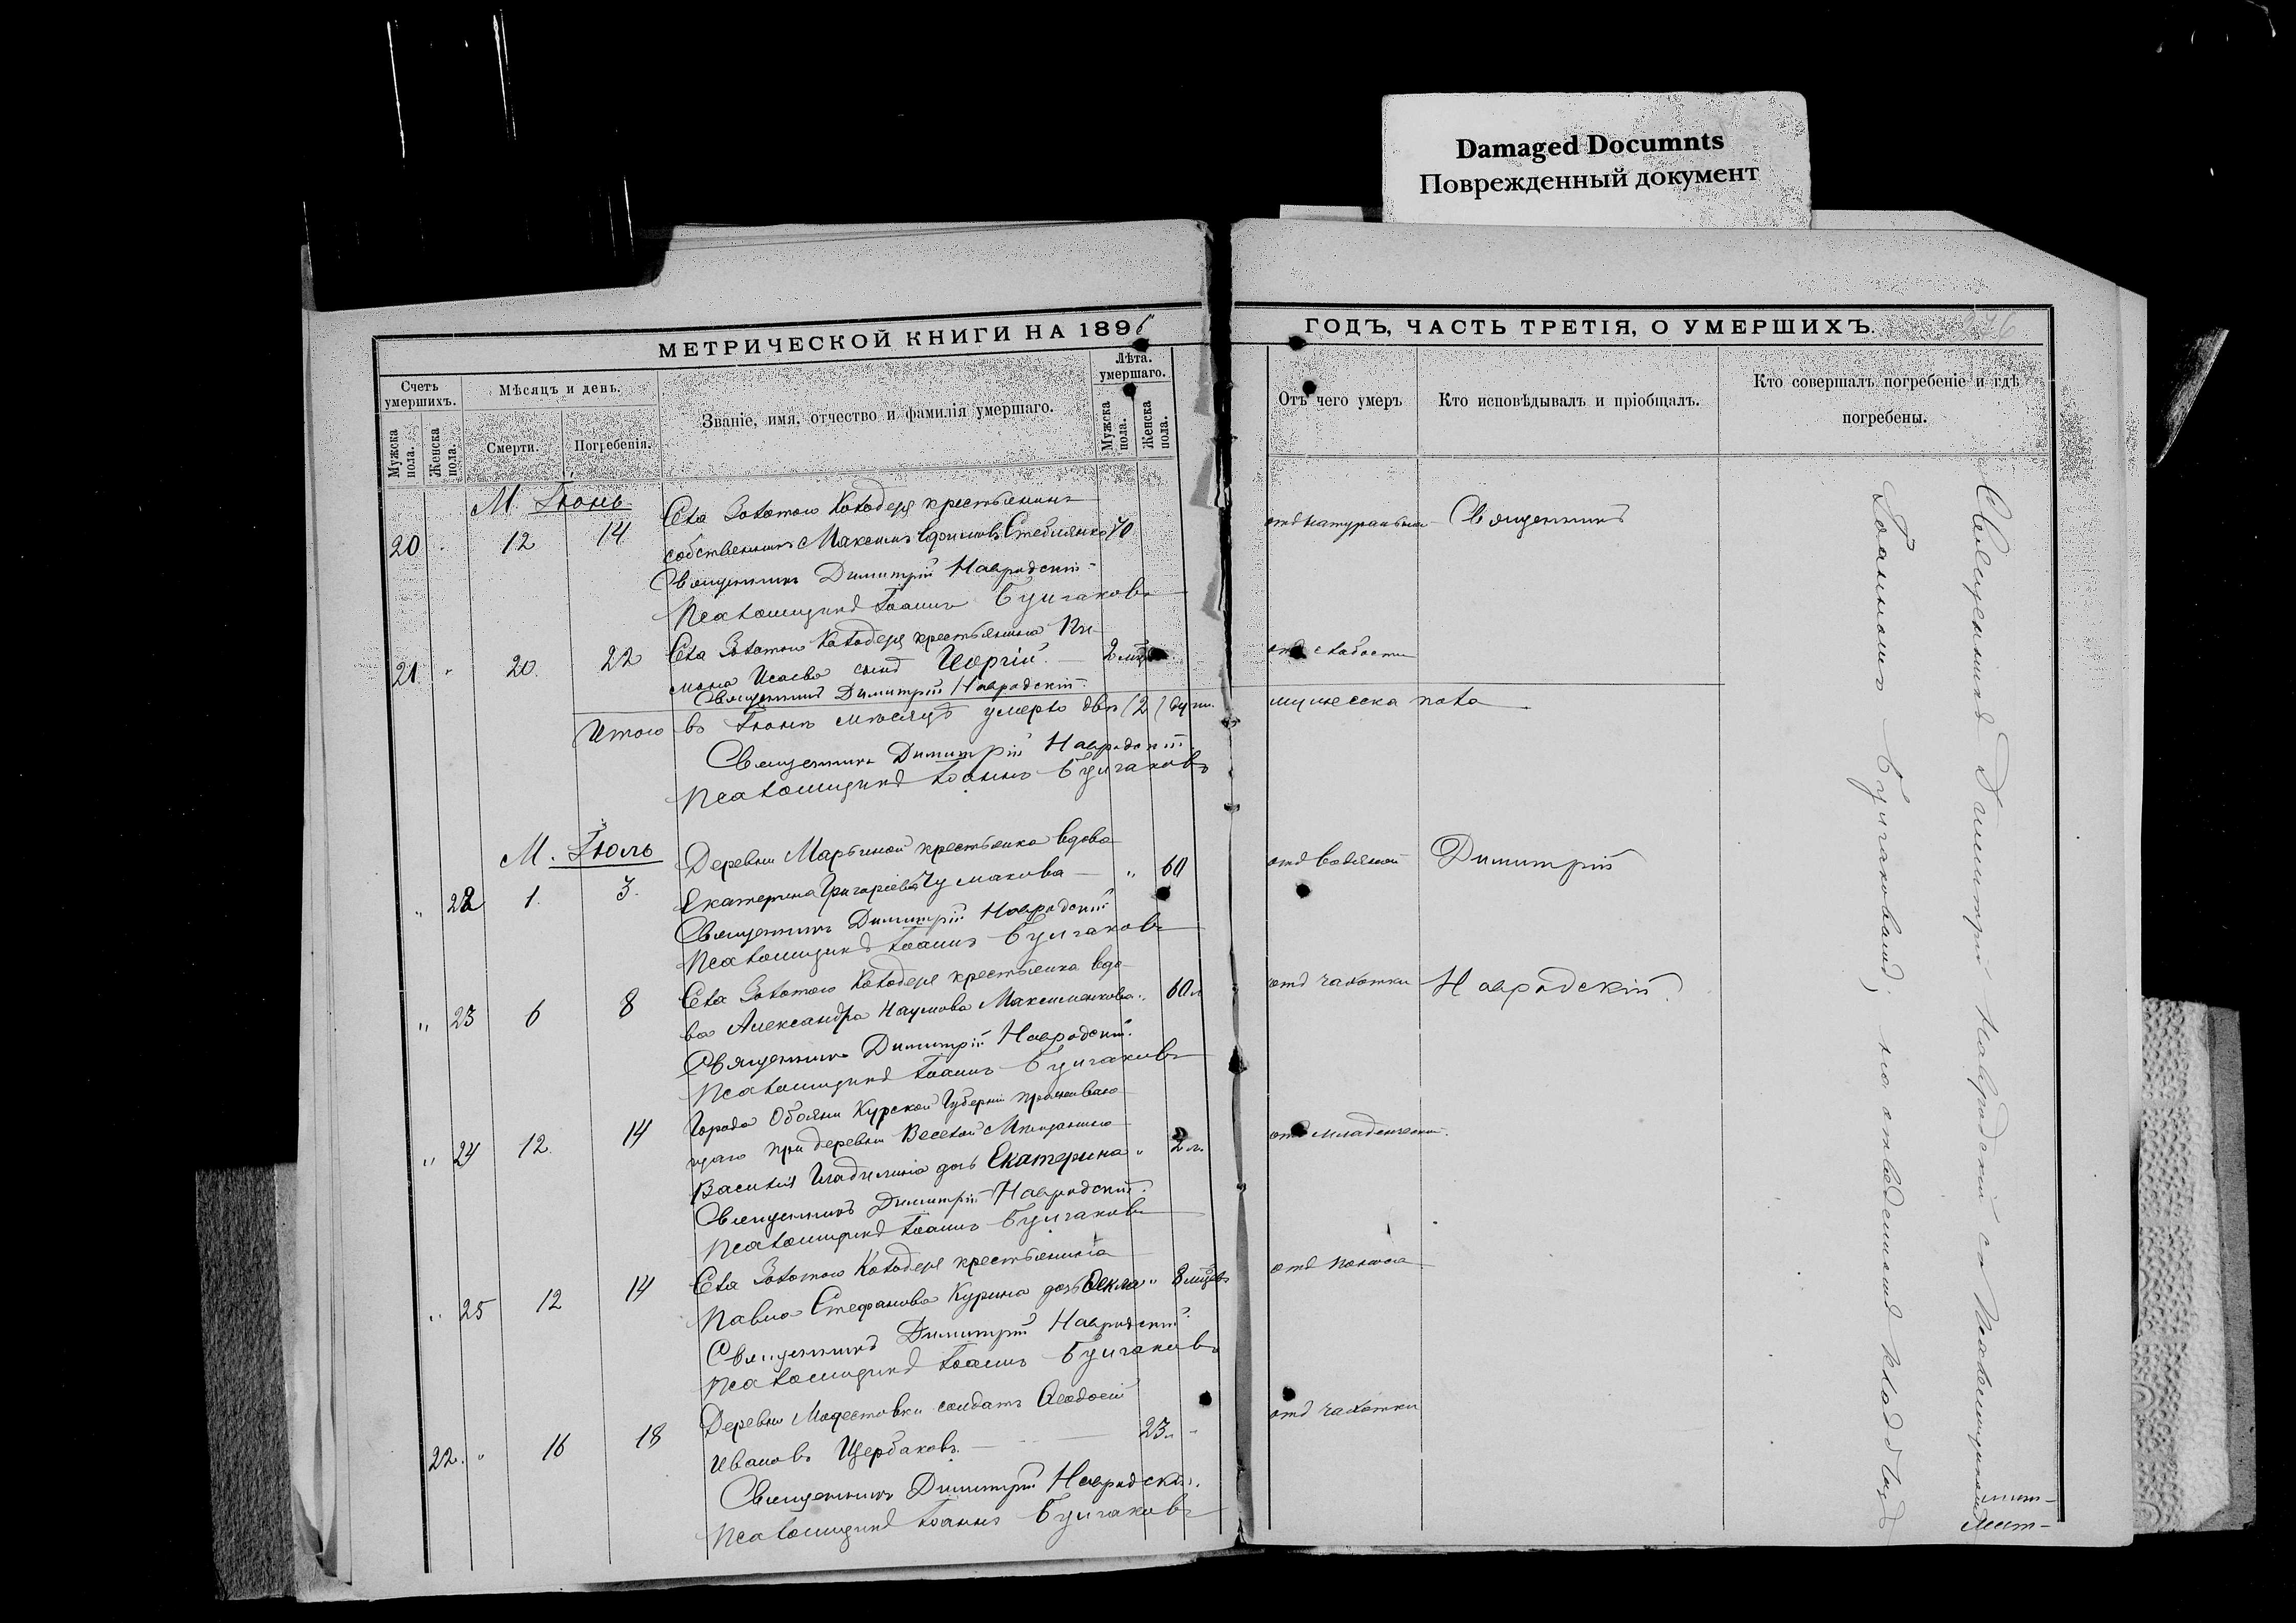 Damaged Documnts
Поврежденный документ
МЕТРИЧЕСКОЙ КНИГИ НА 1896
Счетъ умершихъ.
Мужска пола.
Женска пола.
Мѣсяцъ и день.
Смерти.
Погребенія.
Званіе, имя, отчество и фамилія умершаго.
Лѣта. умершаго.
Мужска пола.
Женска пола.
М. Іюнь
Села Золотого Колодезя крестьянинъ
20 " 12 14 собственникъ Максимъ Ефимовъ Стеблянко 70
Священникъ Димитрій Навродскій
Псаломщикъ Іоаннъ Булгаковъ
Села Золотого Колодезя крестьянина Пи-
21 " 20. 22 мона Исаева сынъ Георгій. — 2 мц
Священникъ Димитрій Навродскій.
Итого въ Іюнѣ мѣсяцѣ умерло двѣ (2) душ.
Священникъ Димитрій Навродскій.
Псаломщикъ Іоаннъ Булгаковъ
М. Іюль
Деревни Марьиной крестьянка вдова
" 22 1. 3. Екатерина Григоріева Чумакова — " 60
Священникъ Димитрій Навродскій
Псаломщикъ Іоаннъ Булгаковъ
Села Золотого Колодезя крестьянка вдо-
" 23 6 8 ва Александра Наумова Максименкова " 60 л
Священникъ Димитрій Навродскій.
Псаломщикъ Іоаннъ Булгаковъ
Города Обояни Курской Губерніи проживаю-
" 24 12. 14 щаго при деревни Веселой Мѣщанина
Василія дочь Екатерина " 2 л.
Священникъ Димитрій Навродскій.
Псаломщикъ Іоаннъ Булгаковъ
Села Золотого Колодезя крестьянина
" 25 12 14 Павла Стефанова Курина дочь Ѳекла " 8 мцевъ
Священникъ Димитрій Навродскій
Псаломщикъ Іоаннъ Булгаковъ
Деревни Модестовки солдатъ Ѳеодосій
22. " 16 18 Ивановъ Щербаковъ. — 23 л "
Священникъ Димитрій Навродскій.
Псаломщикъ Іоаннъ Булгаковъ
ГОДЪ, ЧАСТЬ ТРЕТІЯ, О УМЕРШИХЪ.
Отъ чего умеръ
Кто исповѣдывалъ и пріобщалъ.
Кто совершалъ погребеніе и гдѣ погребены.
Священникъ
отъ слабости
мужеска пола
отъ водяной
Димитрій
отъ чахотки
Навродскій.
отъ младенческой.
отъ поноса
отъ чахотки
Священникъ Димитрій Навродскій съ Псаломщикомъ
Іоанномъ Булгаковымъ, на отведенномъ кладбищѣ